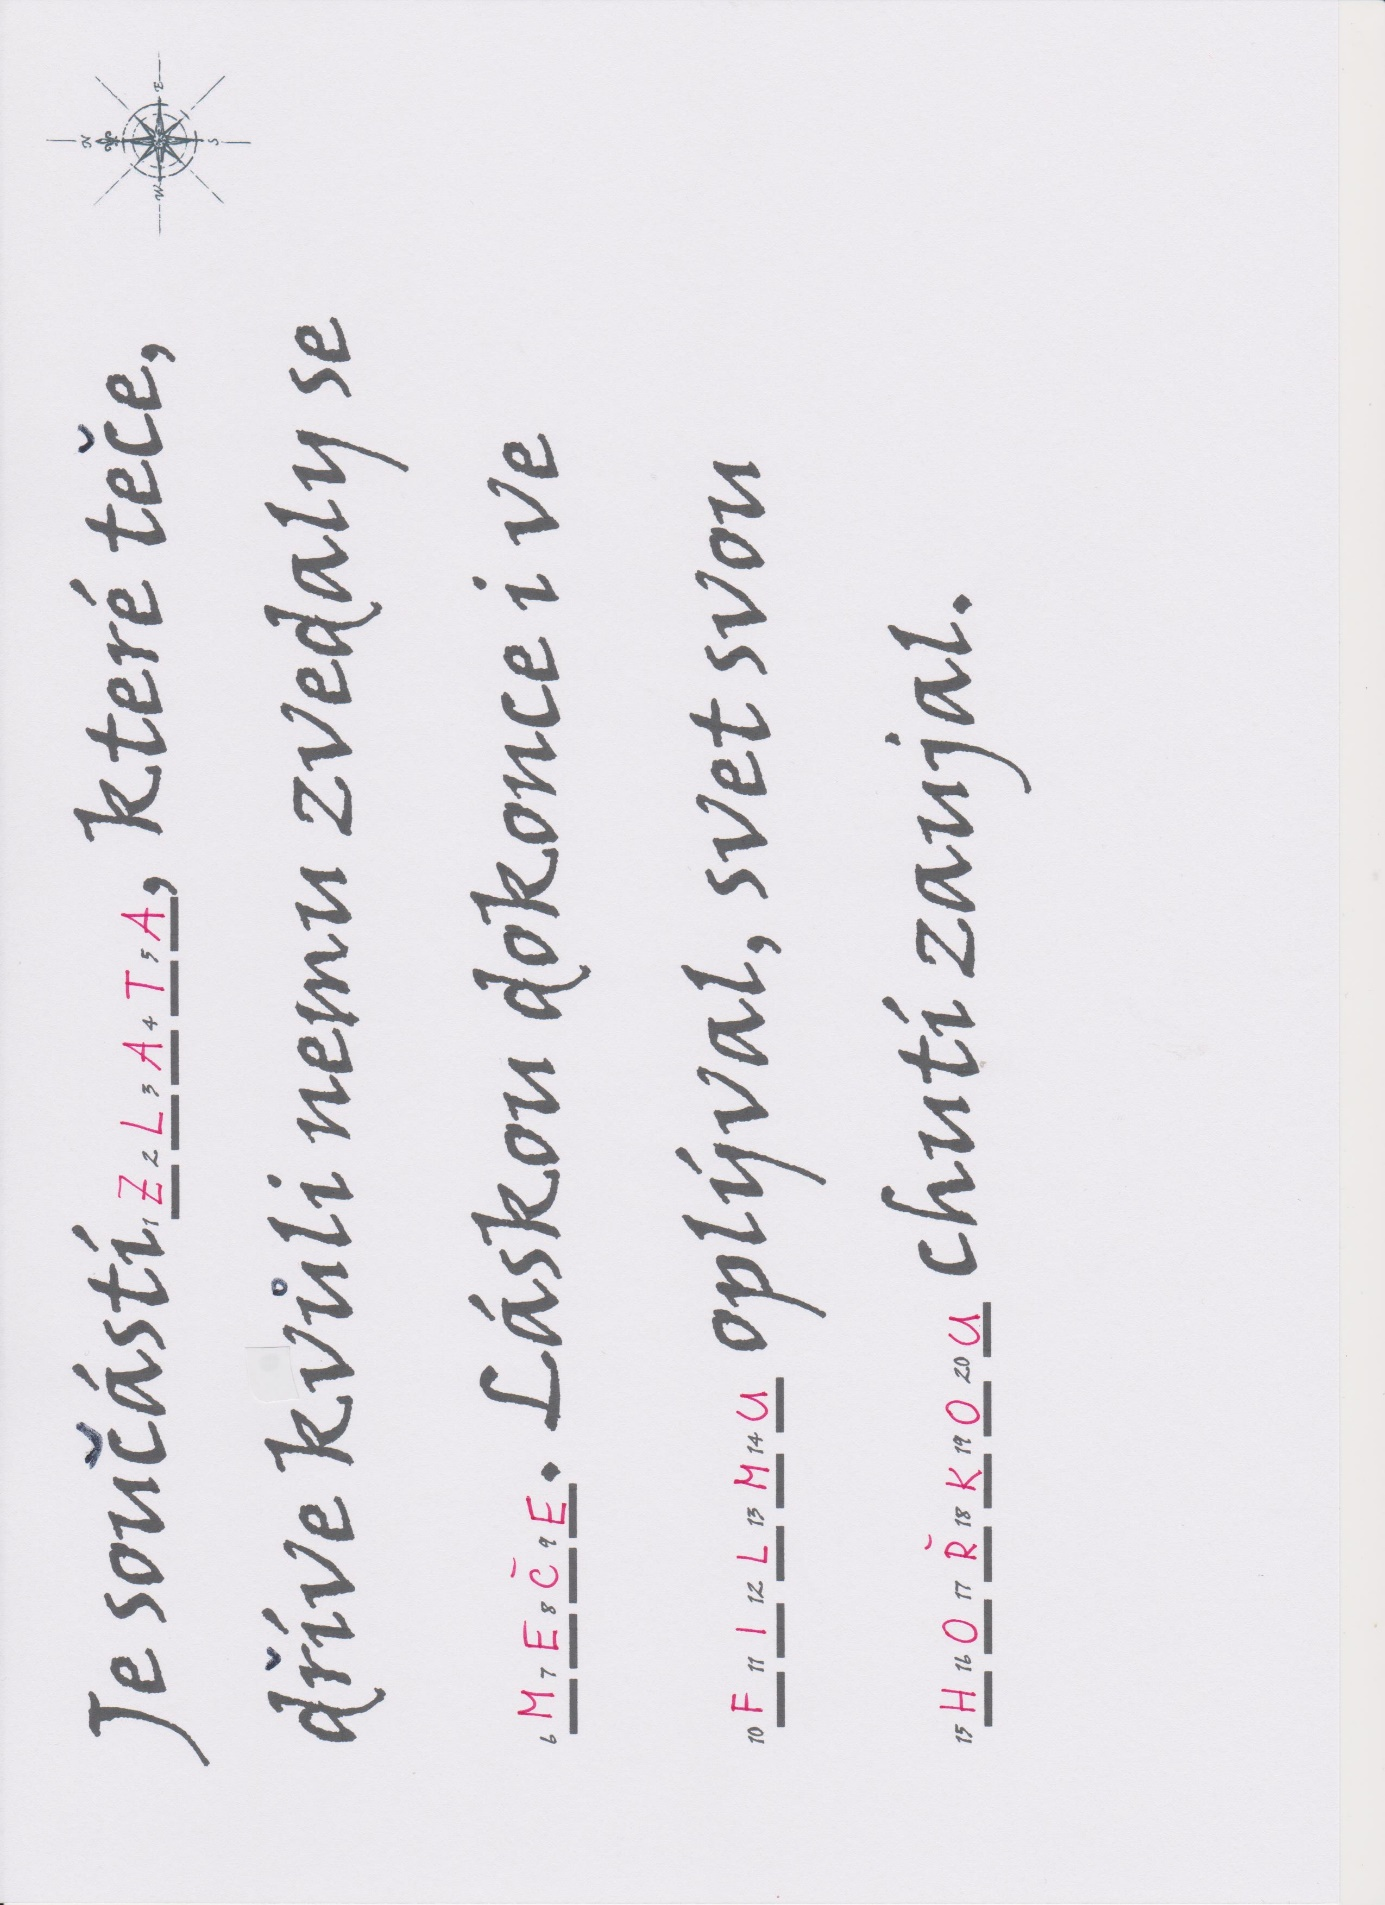 N
E
S
W
Je součástí 1 Z 2 L 3 A 4 T 5 A, které teče,
dříve kvůli nemu zvedaly se
6 M 7 E 8 Č 9 E. Láskou dokonce i ve
10 F 11 I 12 L 13 M 14 U oplýval, svet svou
15 H 16 O 17 Ř 18 K 19 O 20 U chutí zaujal.